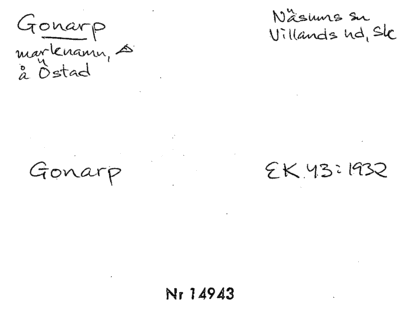 Gonarp
Näsums sn
Villands hd, Sk
marknamn, △
å Östad
Gonarp
EK 43:1932
Nr 14943